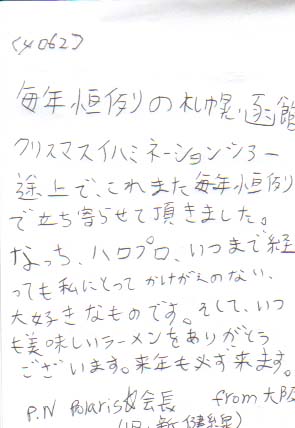 <4062>
毎年恒例りの札幌、函館
クリスマスイルミネーションツアー
途上で、これまた毎年恒例
で立ち寄らせて頂きました。
なっち、ハロプロ、いつまで経
っても私にとってかけがえのない、
大好きなものです。そして、いつ
も美味しいラーメンをありがとう
ございます。来年も必ず来ます。
P.N Polaris 会長 from大阪
(旧、新健